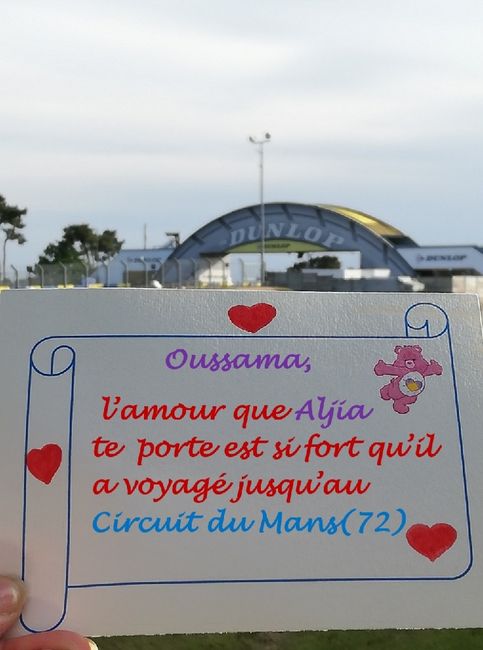 DUNLOP
DUNLOP
DUNLOP
DUNLOP
Oussama,
l'amour que Aljia
te porte est si fort qu'il
a voyagé jusqu'au
Circuit du Mans(72)